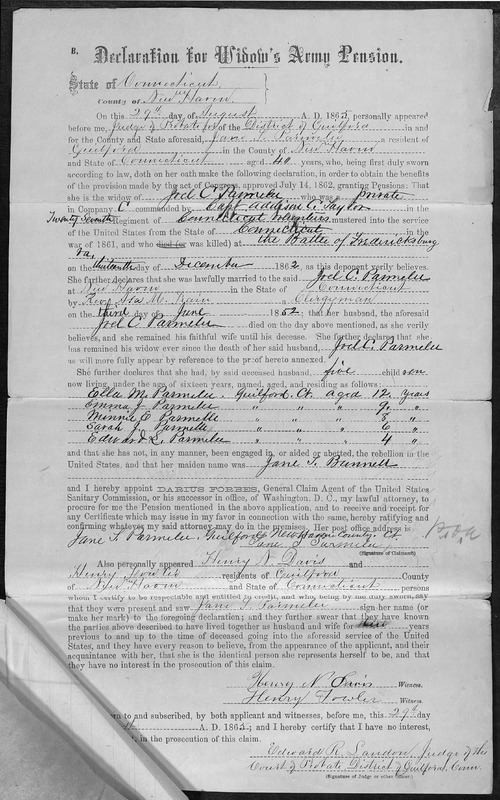 B. Declaration for Widow's Army Pension.
State of Connecticut,
County of New Haven
On this 29th day of August A. D. 1863, personally appeared
before me, Judge of Probate for of the District of Guilford in and
for the County and State aforesaid, Jane L. Parmelee a resident of
Guilford in the County of New Haven
and State of Connecticut aged 40 years, who, being first duly sworn
according to law, doth on her oath make the following declaration, in order to obtain the benefits
of the provision made by the act of Congress, approved July 14, 1862, granting Pensions: That
she is the widow of Joel C. Parmelee who was a private
in Company commanded by Capt. Addison C. Taylor in the
Twenty Seventh Regiment of Connecticut Volunteers mustered into the service
of the United States from the State of Connecticut in the
war of 1861, and who died (or was killed) at the Battle of Fredericksburg
Va.
on the thirteenth day of December 1862, as this deponent verily believes.
She further declares that she was lawfully married to the said Joel C. Parmelee
at New Haven in the State of Connecticut
by Rev. M. a Clergyman
on the third day of June 1852, that her husband, the aforesaid
Joel C. Parmelee died on the day above mentioned, as she verily
believes, and she remained his faithful wife until his decease. She further declares that she
has remained his widow ever since the death of her said husband, Joel C. Parmelee
as will more fully appear by reference to the proof hereto annexed.
She further declares that she had, by said deceased husband, five children
now living, under the age of sixteen years, named, aged, and residing as follows:
Ella M. Parmelee Guilford Ct aged 12 years
Emma J. Parmelee " " " 9 "
Minnie C. Parmelee " " " 8 "
Sarah J. Parmelee " " " 6 "
Edward L. Parmelee " " " 4 "
and that she has not, in any manner, been engaged in, or aided or abetted, the rebellion in the
United States, and that her maiden name was Jane L. Bunnell
and I hereby appoint DARIUS FORBES, General Claim Agent of the United States
Sanitary Commission, or his successor in office, of Washington, D. C., my lawful attorney, to
procure for me the Pension mentioned in the above application, and to receive and receipt for
any Certificate which may issue in my favor in connection with the same, hereby ratifying and
confirming whatever my said attorney may do in the premises. Her post office address is
Jane L. Parmelee, Guilford, New Haven County, Ct.
Jane L. Parmelee
(Signature of Claimant)
Also personally appeared Henry N. Davis and
Henry Fowler residents of Guilford County
of New Haven and State of Connecticut persons
whom I certify to be respectable and entitled to credit, and who, being by me duly sworn, say
that they were present and saw Jane L. Parmelee sign her name (or
make her mark) to the foregoing declaration; and they further swear that they have known
the parties above described to have lived together as husband and wife for years
previous to and up to the time of deceased going into the aforesaid service of the United
States, and they have every reason to believe, from the appearance of the applicant, and their
acquaintance with her, that she is the identical person she represents herself to be, and that
they have no interest in the prosecution of this claim.
Henry N. Davis Witness.
Henry Fowler Witness.
to and subscribed, by both applicant and witnesses, before me, this 29th day
A. D. 1863; and I hereby certify that I have no interest,
in the prosecution of this claim.
Edward R. Landon, Judge of the
Court of Probate District of Guilford, Conn.
(Signature of Judge or other officer)